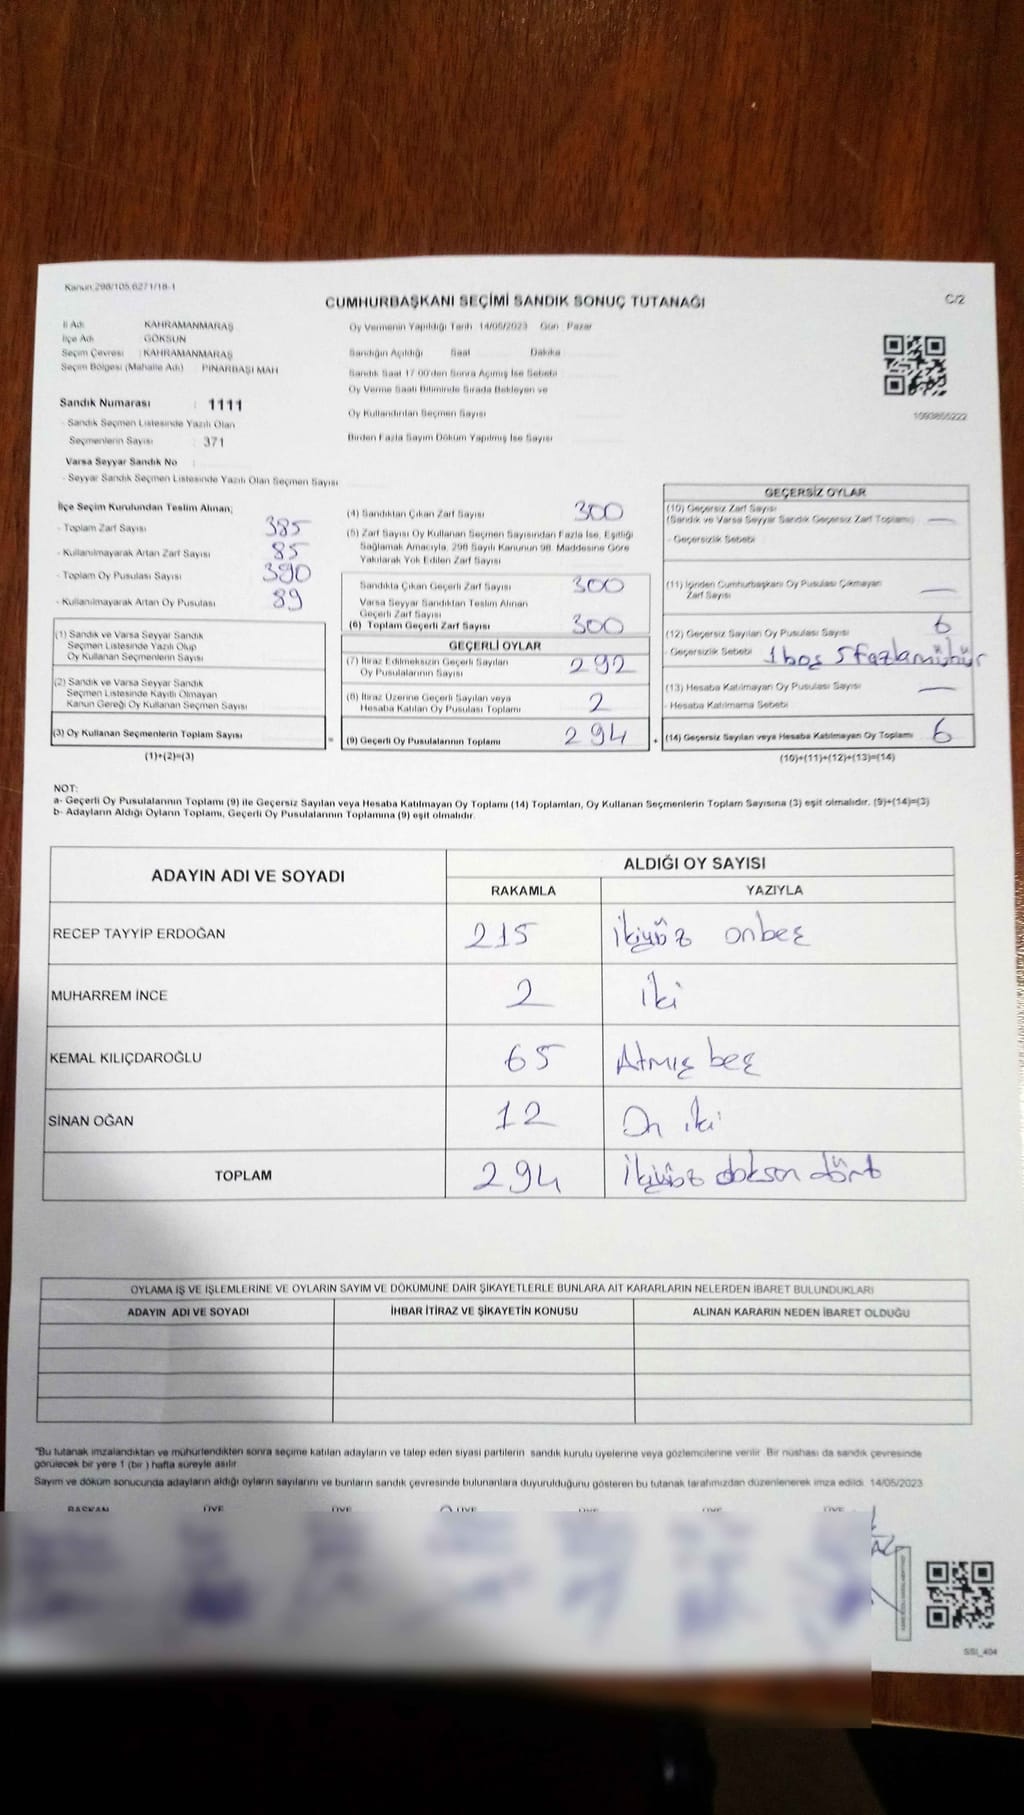 Kanun:298/105,6271/18-1
CUMHURBAŞKANI SEÇİMİ SANDIK SONUÇ TUTANAĞI
C/2
İl Adı KAHRAMANMARAŞ
İlçe Adı GÖKSUN
Seçim Çevresi : KAHRAMANMARAŞ
Seçim Bölgesi (Mahalle Adı) PINARBAŞI MAH
Sandık Numarası : 1111
- Sandık Seçmen Listesinde Yazılı Olan
Seçmenlerin Sayısı : 371
Varsa Seyyar Sandık No
- Seyyar Sandık Seçmen Listesinde Yazılı Olan Seçmen Sayısı
Oy Vermenin Yapıldığı Tarih 14/05/2023 Gün : Pazar
Sandığın Açıldığı Saat Dakika
Sandık Saat 17:00'den Sonra Açımış İse Sebebi
Oy Verme Saati Bitiminde Sırada Bekleyen ve
Oy Kullandırılan Seçmen Sayısı
Birden Fazla Sayım Döküm Yapılmış İse Sayısı
1093855222
İlçe Seçim Kurulundan Teslim Alınan;
- Toplam Zarf Sayısı 385
- Kullanılmayarak Artan Zarf Sayısı 85
- Toplam Oy Pusulası Sayısı 380
- Kullanılmayarak Artan Oy Pusulası 89
(1) Sandık ve Varsa Seyyar Sandık
Seçmen Listesinde Yazılı Olup
Oy Kullanan Seçmenlerin Sayısı
(2) Sandık ve Varsa Seyyar Sandık
Seçmen Listesinde Kayıtlı Olmayan
Kanun Gereği Oy Kullanan Seçmen Sayısı
(3) Oy Kullanan Seçmenlerin Toplam Sayısı
(1)+(2)=(3)
(4) Sandıktan Çıkan Zarf Sayısı 300
(5) Zarf Sayısı Oy Kullanan Seçmen Sayısından Fazla İse, Eşitliği
Sağlamak Amacıyla, 298 Sayılı Kanunun 98. Maddesine Göre
Yakılarak Yok Edilen Zarf Sayısı
Sandıkta Çıkan Geçerli Zarf Sayısı 300
Varsa Seyyar Sandıktan Teslim Alınan
Geçerli Zarf Sayısı
(6) Toplam Geçerli Zarf Sayısı 300
GEÇERLİ OYLAR
(7) İtiraz Edilmeksizin Geçerli Sayılan
Oy Pusulalarının Sayısı 292
(8) İtiraz Üzerine Geçerli Sayılan veya
Hesaba Katılan Oy Pusulası Toplamı 2
= (9) Geçerli Oy Pusulalarının Toplamı 294
GEÇERSİZ OYLAR
(10) Geçersiz Zarf Sayısı
(Sandık ve Varsa Seyyar Sandık Geçersiz Zarf Toplamı) —
- Geçersizlik Sebebi
(11) İçinden Cumhurbaşkanı Oy Pusulası Çıkmayan
Zarf Sayısı —
(12) Geçersiz Sayılan Oy Pusulası Sayısı 6
- Geçersizlik Sebebi 1 boş 5 fazla mühür
(13) Hesaba Katılmayan Oy Pusulası Sayısı —
- Hesaba Katılmama Sebebi
+ (14) Geçersiz Sayılan veya Hesaba Katılmayan Oy Toplamı 6
(10)+(11)+(12)+(13)=(14)
NOT:
a- Geçerli Oy Pusulalarının Toplamı (9) ile Geçersiz Sayılan veya Hesaba Katılmayan Oy Toplamı (14) Toplamları, Oy Kullanan Seçmenlerin Toplam Sayısına (3) eşit olmalıdır. (9)+(14)=(3)
b- Adayların Aldığı Oyların Toplamı, Geçerli Oy Pusulalarının Toplamına (9) eşit olmalıdır.
ADAYIN ADI VE SOYADI ALDIĞI OY SAYISI
RAKAMLA YAZIYLA
RECEP TAYYİP ERDOĞAN 215 ikiyüz onbeş
MUHARREM İNCE 2 iki
KEMAL KILIÇDAROĞLU 65 Atmış beş
SİNAN OĞAN 12 On iki
TOPLAM 294 ikiyüz doksan dört
OYLAMA İŞ VE İŞLEMLERİNE VE OYLARIN SAYIM VE DÖKÜMÜNE DAİR ŞİKAYETLERLE BUNLARA AİT KARARLARIN NELERDEN İBARET BULUNDUKLARI
ADAYIN ADI VE SOYADI İHBAR İTİRAZ VE ŞİKAYETİN KONUSU ALINAN KARARIN NEDEN İBARET OLDUĞU
*Bu tutanak imzalandıktan ve mühürlendikten sonra seçime katılan adayların ve talep eden siyasi partilerin sandık kurulu üyelerine veya gözlemcilerine verilir. Bir nüshası da sandık çevresinde
görülecek bir yere 1 (bir) hafta süreyle asılır.
Sayım ve döküm sonucunda adayların aldığı oyların sayılarını ve bunların sandık çevresinde bulunanlara duyurulduğunu gösteren bu tutanak tarafımızdan düzenlenerek imza edildi. 14/05/2023
BAŞKAN ÜYE ÜYE ÜYE ÜYE ÜYE ÜYE
SSİ_404